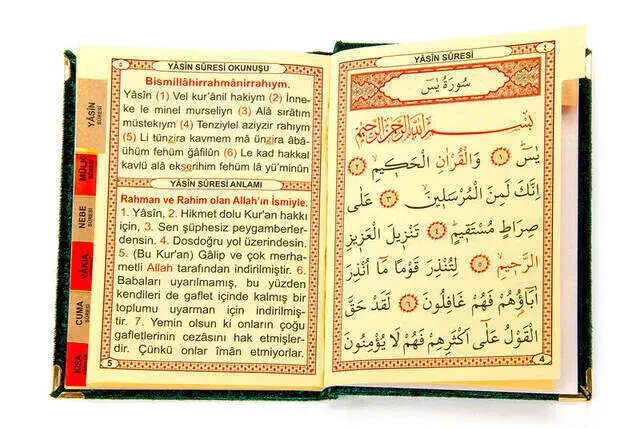 YÂSİN SÛRESİ
٤
سُورَةُ يٰسٓ
بِسْمِ اللّٰهِ الرَّحْمٰنِ الرَّحِيمِ
يٰسٓ ۚ ﴿١﴾ وَالْقُرْاٰنِ الْحَكِيمِ ۙ ﴿٢﴾
اِنَّكَ لَمِنَ الْمُرْسَلِينَ ۙ ﴿٣﴾ عَلٰى
صِرَاطٍ مُسْتَقِيمٍ ۜ ﴿٤﴾ تَنْزِيلَ الْعَزِيزِ
الرَّحِيمِ ۙ ﴿٥﴾ لِتُنْذِرَ قَوْمًا مَٓا اُنْذِرَ
اٰبَٓاؤُ۬هُمْ فَهُمْ غَافِلُونَ ﴿٦﴾ لَقَدْ حَقَّ
الْقَوْلُ عَلٰٓى اَكْثَرِهِمْ فَهُمْ لَا يُؤْمِنُونَ
4
٥
YÂSİN SÛRESİ OKUNUŞU
Bismillâhirrahmânirrahıym.
Yâsîn (1) Vel kur'ânil hakiym (2) İnne-
ke le minel murseliyn (3) Alâ sırâtım
müstekıym (4) Tenziylel aziyzir rahıym
(5) Li tünzira kavmem mâ ünzira âbâ-
ühüm fehüm ğâfilûn (6) Le kad hakkal
kavlü alâ ekserihim fehüm lâ yü'minûn
YÂSİN SÛRESİ ANLAMI
Rahman ve Rahim olan Allah'ın İsmiyle.
1. Yâsin, 2. Hikmet dolu Kur'an hakkı
için, 3. Sen şüphesiz peygamberler-
densin. 4. Dosdoğru yol üzerindesin.
5. (Bu Kur'an) Gâlip ve çok merha-
metli Allah tarafından indirilmiştir. 6.
Babaları uyarılmamış, bu yüzden
kendileri de gaflet içinde kalmış bir
toplumu uyarman için indirilmiş-
tir. 7. Yemin olsun ki onların çoğu
gafletlerinin cezâsını hak etmişler-
dir. Çünkü onlar îmân etmiyorlar.
5
YÂSİN
SÛRESİ
MÜLK
SÛRESİ
NEBE
SÛRESİ
VÂKIA
SÛRESİ
CUMA
SÛRESİ
KISA